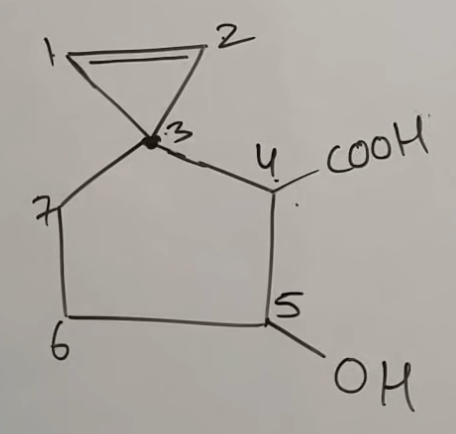 1 2
3
4 COOH
7
5
6
OH